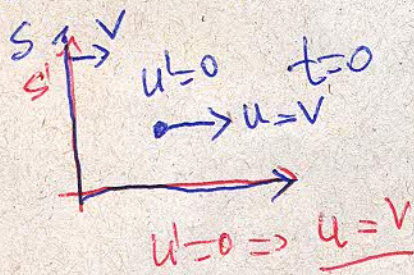 S V
S'
u'=0 t=0
u=V
u'=0 => u=V